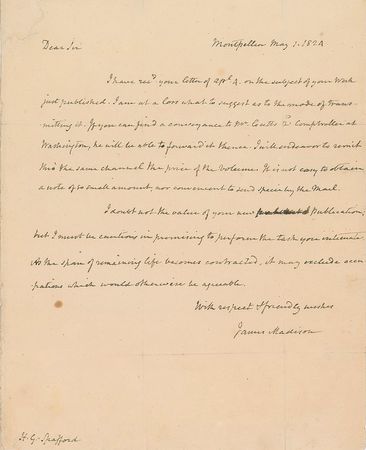 Montpellier May 1. 1824
Dear Sir
I have recd your letter of apl. 4. on the subject of your Work
just published. I am at a loss what to suggest as to the mode of trans-
mitting it. If you can find a conveyance to Mr. Cutts 2d Comptroller at
Washington, he will be able to forward it thence. I will endeavor to remit
thro the same channel the price of the volume. It is not easy to obtain
a note of so small amount, nor convenient to send specie by the Mail.
I doubt not the value of your new publication;
but I must be cautious in promising to perform the task you intimate.
As the span of remaining life becomes contracted, it may exclude occu
pations which would otherwise be agreeable.
With respect & friendly wishes
James Madison
H. G. Spafford